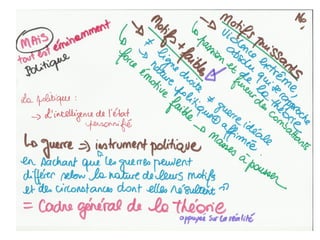 No
MAIS
tout est éminemment
politique
→ Motifs + faibles
↳ ≠ ligne droite
→ nature politique + affirmée
↳ force émotive faible
→ Motifs puissants
Violence extrême,
absolue qui se rapproche
de la théorie
↳ passion et fureur de combattants
≠ guerre idéale
→ Masses à pousser
La politique :
→ L'intelligence de l'état
personnifié
La guerre → instrument politique
en sachant que les guerres peuvent
différer selon la nature de leurs motifs
et des circonstances dont elles résultent
= Cadre général de la théorie
appuyée sur la réalité